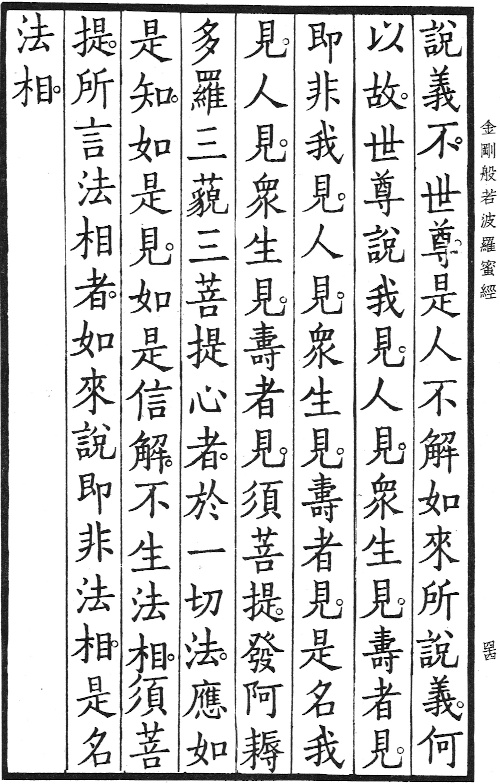 金剛般若波羅蜜經
說義不。世尊。是人不解如來所說義。何
以故。世尊說我見。人見。眾生見。壽者見。
即非我見。人見。眾生見。壽者見。是名我
見。人見。眾生見。壽者見。須菩提。發阿耨
多羅三藐三菩提心者。於一切法。應如
是知。如是見。如是信解。不生法相。須菩
提。所言法相者。如來說即非法相。是名
法相。